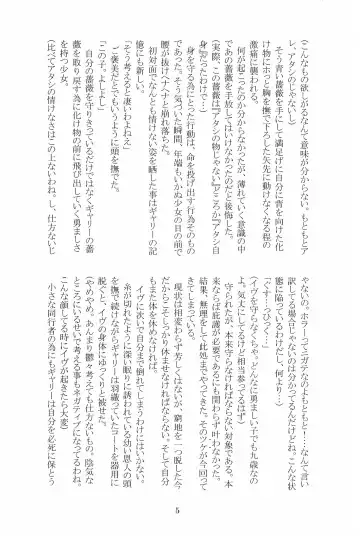 (こんなもの欲しがるなんて意味が分からない。もともとア
レ、アタシのじゃないし)
そう青い薔薇を手にして満足げに自分に背を向けた化
け物にホっと胸を撫で下ろした矢先に動けなくなる程の
激痛に襲われる。
何が起こったのか分からなかったが、薄れていく意識の中
あの薔薇を手放してはいけなかったのだと後悔した。
(実際、この薔薇は『アタシの物じゃない』どころか『アタシ自
身』だったわけで…)
身を守る為にとった行動は、命を投げ出す行為そのもの
であった。そう気づいた瞬間、年端もいかぬ少女の目の前で
腰が抜けヘナヘナと崩れ落ちた。
初対面でなんとも情けない姿を晒した事はギャリーの記
憶にも新しい。
「そう考えると凄いわよねえ」
ご褒美だとでもいうように頭を撫でた。
「この子。よしよし」
自分の薔薇を守りきっているだけではなくギャリーの薔
薇を取り戻す為に化け物の前に飛び出していく勇ましさ
を持つ少女。
(比べてアタシの情けなさはこの上ないわね。し、仕方ないじ
ゃないの。ホラーってニガテなのよもともと…なんて言い
訳してる場合じゃないのは分かってるんだけどね。こんな状
態に陥っているわけだし、何より…)
「ぐす…っひっく…」
(イヴを守らなくちゃ。どんなに勇ましい子でも九歳なの
よ。気丈にしてるけど相当参ってるはず)
守られたが、本来守らなければならない対象である。本
来ならば庇護が必要であるにも関わらず叶わなかった。
結果、無理をし此処までやってきた。そのツケが今回って
きている。
現状は相変わらず芳しくはないが、窮地を一つ脱した今
だからこそしっかり休ませなければならない。そして自分
もまた体を休めなければ。
イヴに次いで自分まで倒れてしまうわけにはいかない。
糸が切れたように深い眠りに誘われている幼い恩人の頭
を撫で続けながらギャリーは羽織っていたコートを器用に
脱ぐと、イヴの身体にゆっくりと被せた。
(やめやめ。あんまり鬱々考えても仕方ないもの。陰気な
ところにいるせいで考える事もネガティブになってるわね。
こんな顔してる時にイヴが起きたら大変)
小さな同行者の為にもギャリーは自分を必死に保とう
5